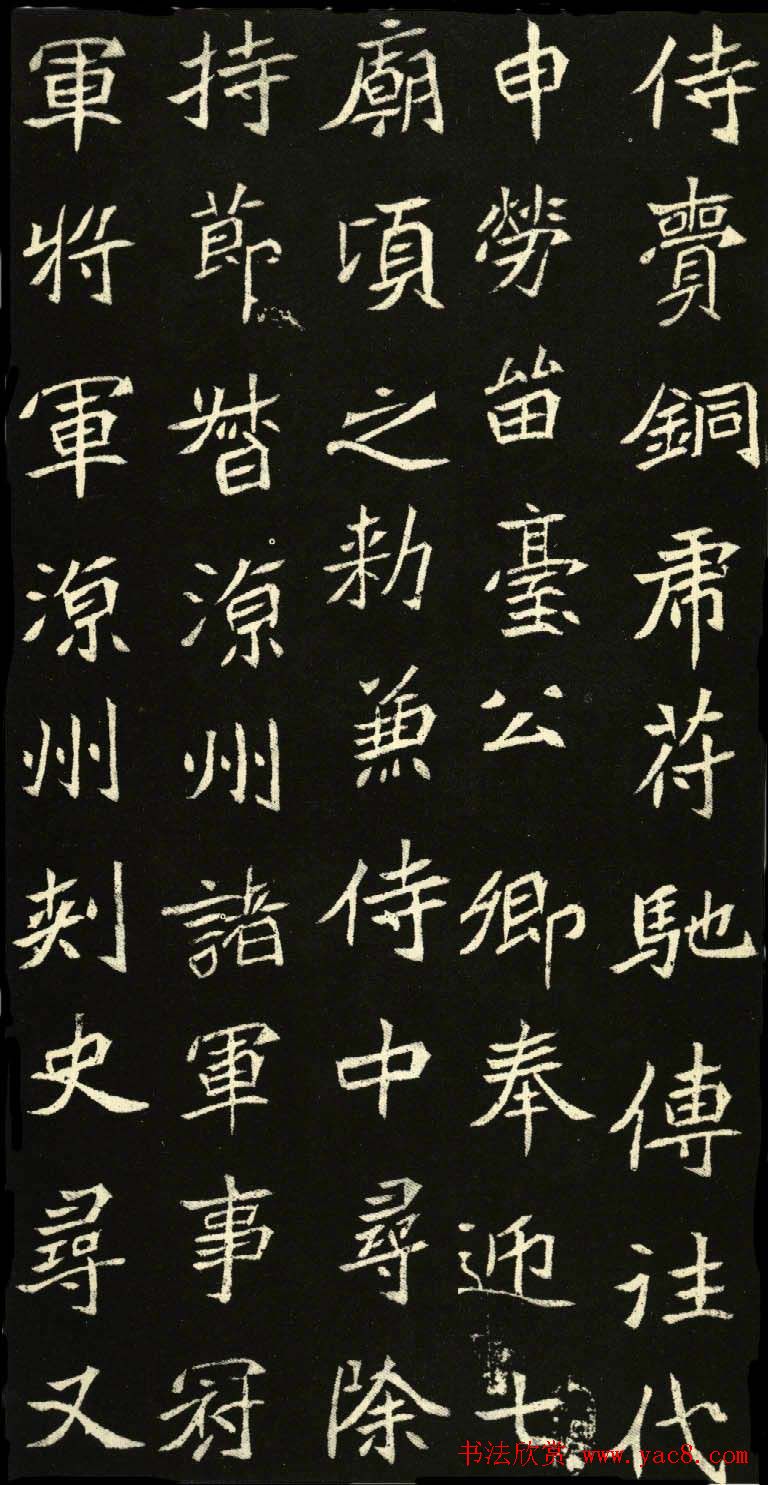 侍賷銅虎符馳傳往代
申勞留臺公卿奉迎七
廟頃之勑兼侍中尋除
持節督涼州諸軍事冠
軍將軍涼州刺史尋又
书法欣赏 www.yac8.com